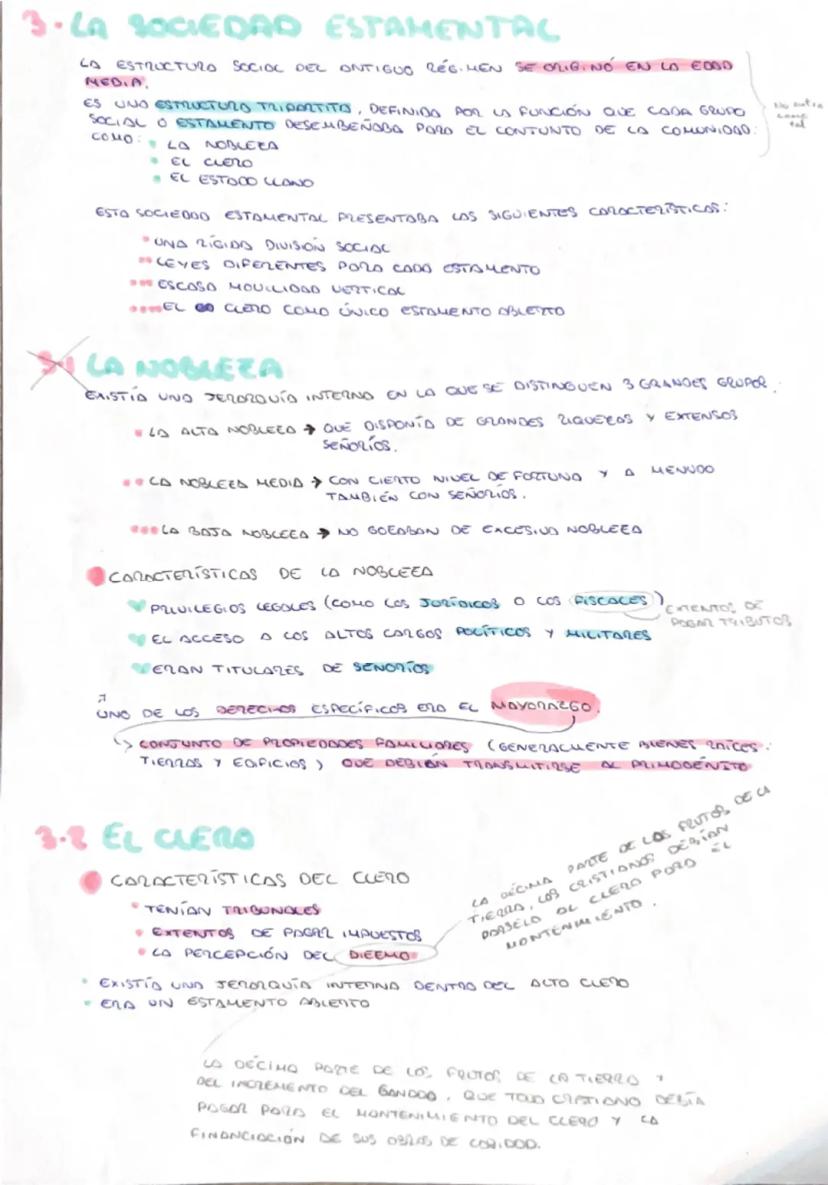 3. LA SOCIEDAD ESTAMENTAL
LA ESTRUCTURA SOCIAL DEL ANTIGUO RÉGIMEN SE ORIGINÓ EN LA EDAD
MEDIA.
ES UNA ESTRUCTURA TRIPARTITA, DEFINIDA POR LA FUNCIÓN QUE CADA GRUPO
SOCIAL O ESTAMENTO DESEMBEÑABA PARA EL CONTUNTO DE LA COMUNIDAD.
COMO: • LA NOBLEZA
• EL CLERO
• EL ESTADO LLANO
ESTA SOCIEDAD ESTAMENTAL PRESENTABA LAS SIGUIENTES CARACTERÍSTICAS:
• UNA RÍGIDA DIVISIÓN SOCIAL
•• LEYES DIFERENTES PARA CADA ESTAMENTO
••• ESCASA MOVILIDAD VERTICAL
•••• EL CLERO COMO ÚNICO ESTAMENTO ABIERTO
3.1 LA NOBLEZA
EXISTÍA UNA JERARQUÍA INTERNA EN LA QUE SE DISTINGUEN 3 GRANDES GRUPOR.
• LA ALTA NOBLEZA → QUE DISPONÍA DE GRANDES RIQUEZAS Y EXTENSOS
SEÑORÍOS.
•• LA NOBLEZA MEDIA → CON CIERTO NIVEL DE FORTUNA Y A MENUDO
TAMBIÉN CON SEÑORÍOS.
••• LA BAJA NOBLEZA → NO GOZABAN DE EXCESIVA NOBLEZA
CARACTERÍSTICAS DE LA NOBLEZA
PRIVILEGIOS LEGALES (COMO LOS JURÍDICOS O LOS FISCALES)
EXTENTOS DE
PAGAR TRIBUTOS
EL ACCESO A LOS ALTOS CARGOS POLÍTICOS Y MILITARES
ERAN TITULARES DE SEÑORÍOS
UNO DE LOS DERECHOS ESPECÍFICOS ERA EL MAYORAZGO.
↳ CONJUNTO DE PROPIEDADES FAMILIARES (GENERALMENTE BIENES RAÍCES:
TIERRAS Y EDIFICIOS) QUE DEBÍAN TRANSMITIRSE AL PRIMOGÉNITO
3.2 EL CLERO
CARACTERÍSTICAS DEL CLERO
• TENÍAN TRIBUNALES
• EXTENTOS DE PAGAR IMPUESTOS
• LA PERCEPCIÓN DEL DIEZMO
LA DÉCIMA PARTE DE LOS FRUTOS DE LA
TIERRA, LOS CRISTIANOS DEBÍAN
DARSELO AL CLERO PARA EL
MANTENIMIENTO.
• EXISTÍA UNA JERARQUÍA INTERNA DENTRO DEL ALTO CLERO
• ERA UN ESTAMENTO ABIERTO
LA DÉCIMA PARTE DE LOS FRUTOS DE LA TIERRA Y
DEL INCREMENTO DEL GANADO, QUE TODO CRISTIANO DEBÍA
PAGAR PARA EL MANTENIMIENTO DEL CLERO Y LA
FINANCIACIÓN DE SUS OBRAS DE CARIDAD.